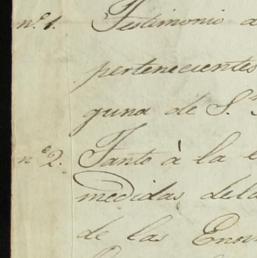 n.º 1. Testimonio d
pertenecientes
guna de S.
n.º 2. Tanto à la
medidas dela
de las